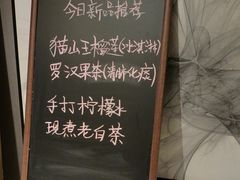 今日新品推荐
猫山王榴莲(冰淇淋)
罗汉果茶(清肺化痰)
手打柠檬水
现煮老白茶